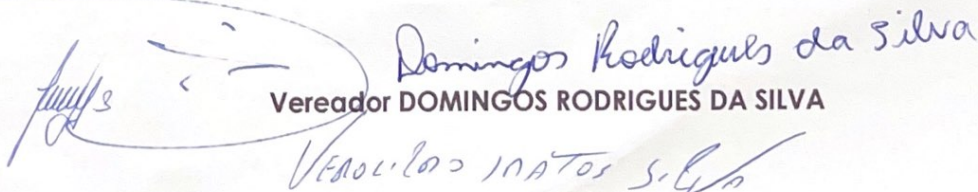 Domingos Rodrigues da Silva
Vereador DOMINGOS RODRIGUES DA SILVA
MATOS SILVA